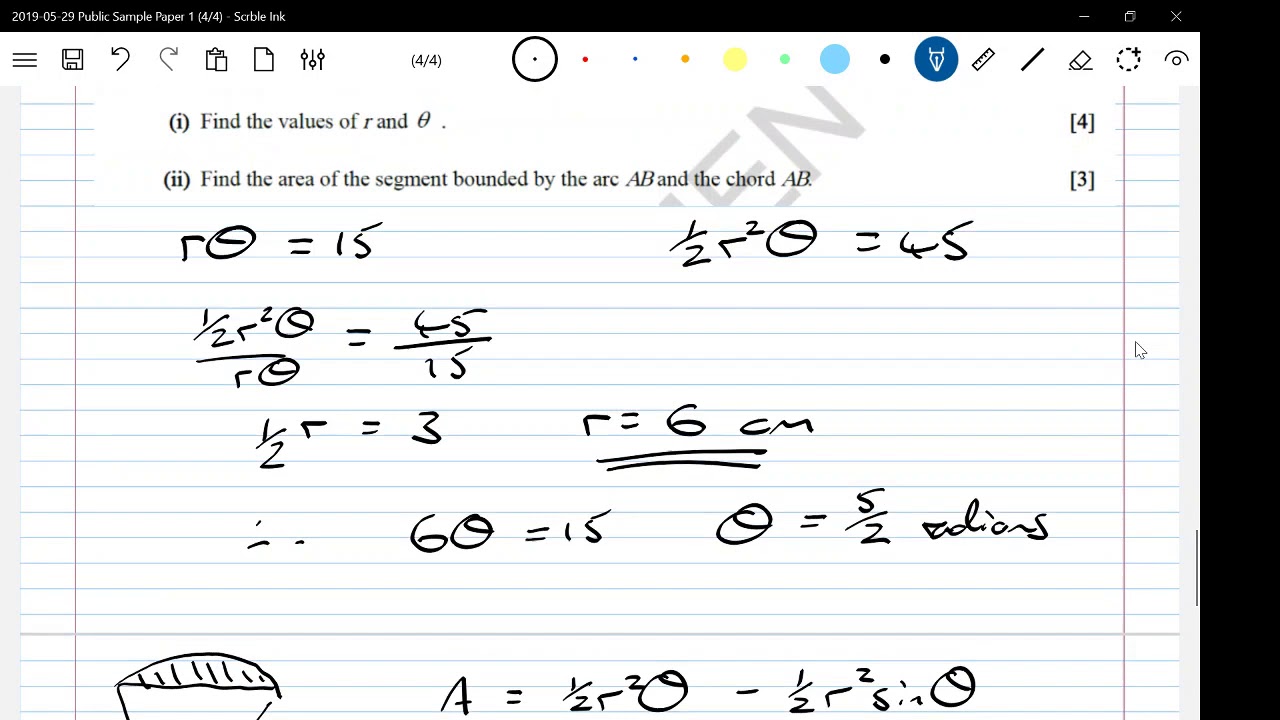 2019-05-29 Public Sample Paper 1 (4/4) - Scrble Ink
(4/4)
(i) Find the values of r and θ . [4]
(ii) Find the area of the segment bounded by the arc AB and the chord AB. [3]
rθ = 15 ½r²θ = 45
½r²θ / rθ = 45 / 15
½r = 3 r = 6 cm
∴ 6θ = 15 θ = 5/2 radians
A = ½r²θ - ½r² sin θ